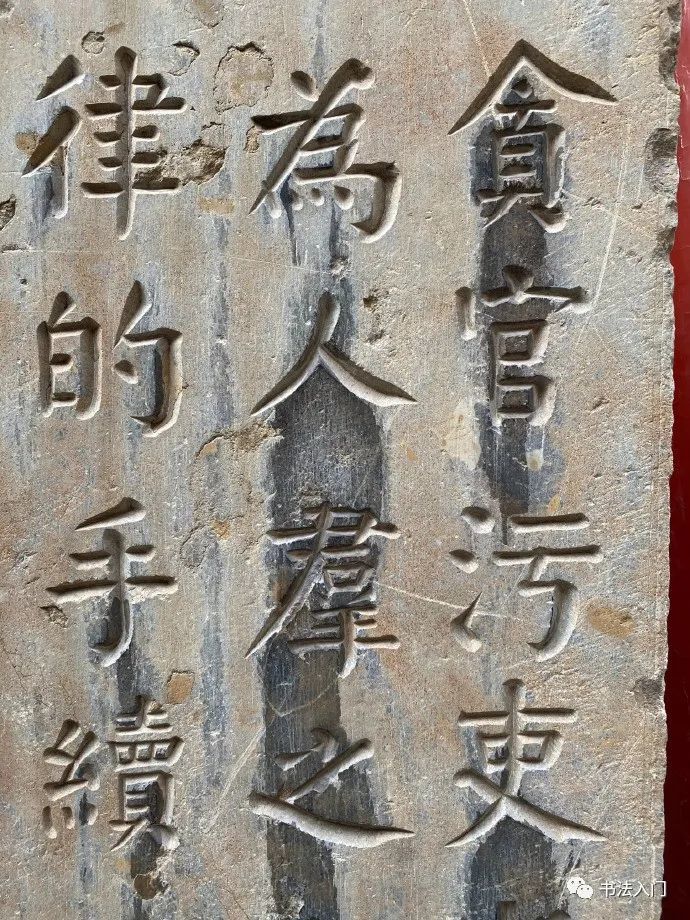 貪官污吏
為人羣之
律的手續
书法入门